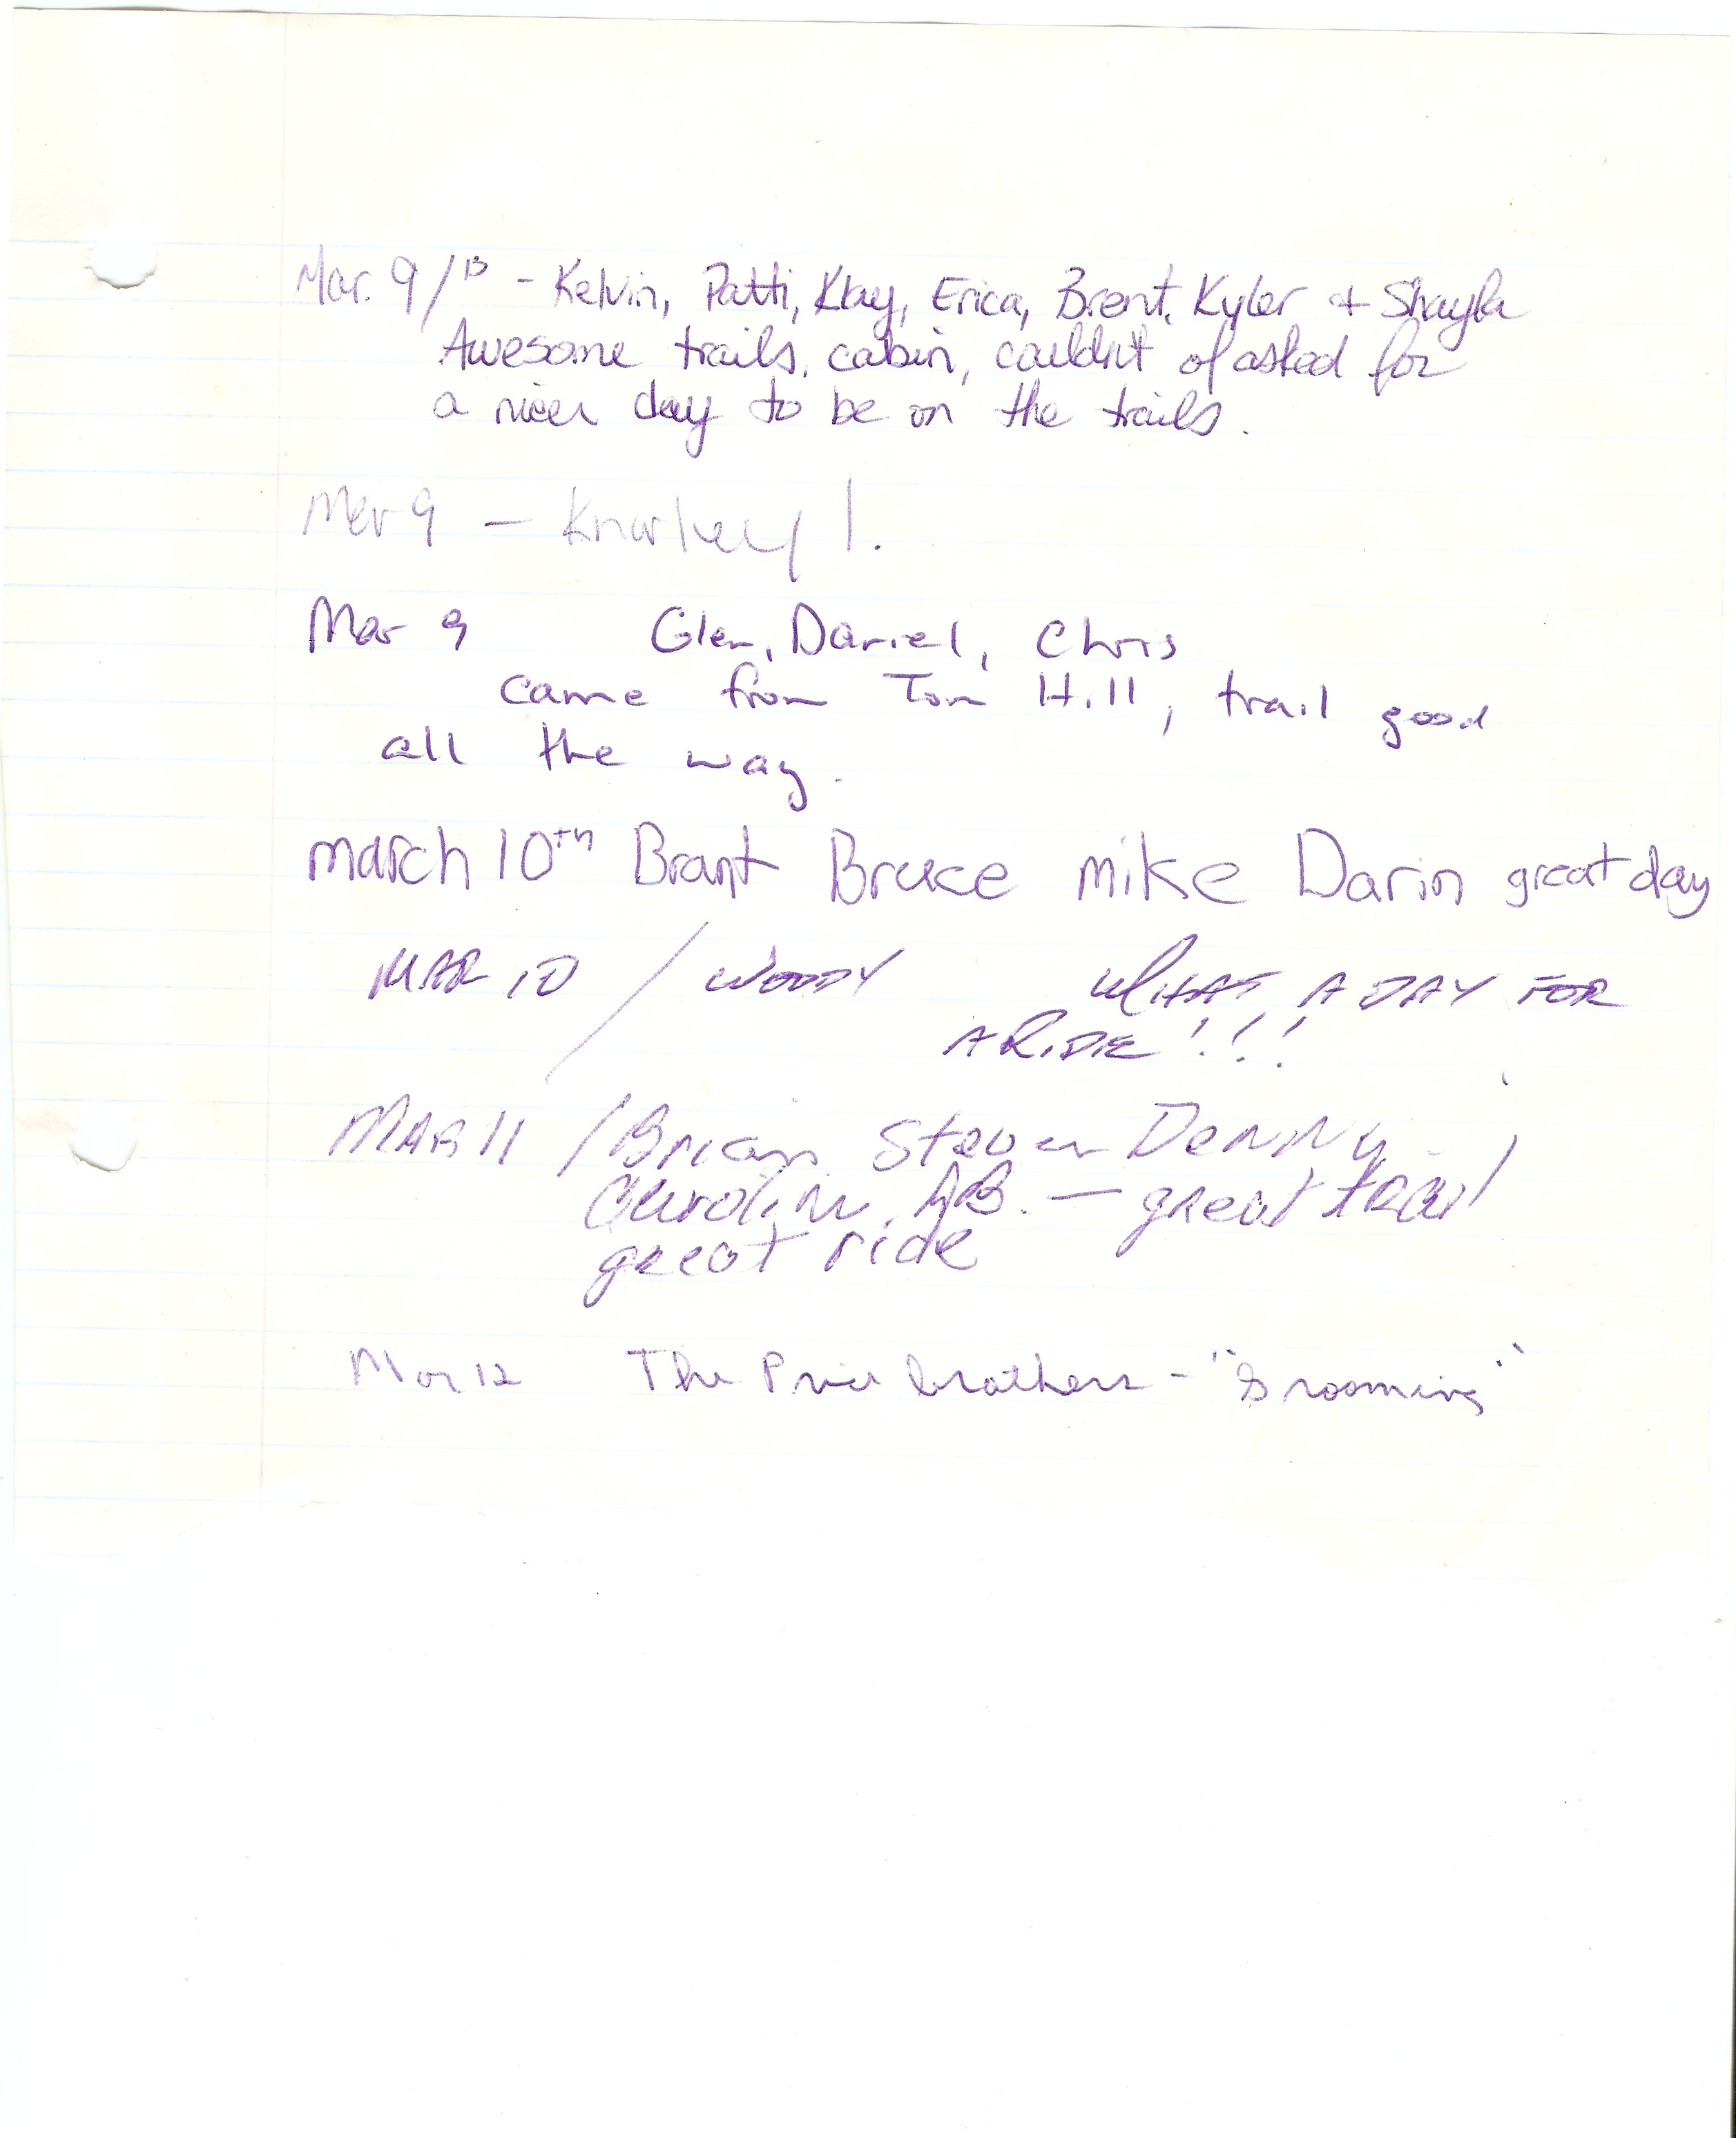 Mar. 9/13 - Kelvin, Patti, Klay, Erica, Brent, Kyler + Shayla
Awesome trails, cabin, couldn't of asked for
a nicer day to be on the trails.
Mar 9 —
Mar 9 Glen, Daniel, Chris
came from Tom Hill, trail good
all the way.
march 10th Brant Bruce mike Darin great day
MAR 10 / WOODY WHAT A DAY FOR
A RIDE!!!
MAR 11 / Brian Steven Denny
Caroline AB. — great trail
great ride
Mar 12 The Price brothers - "Grooming"